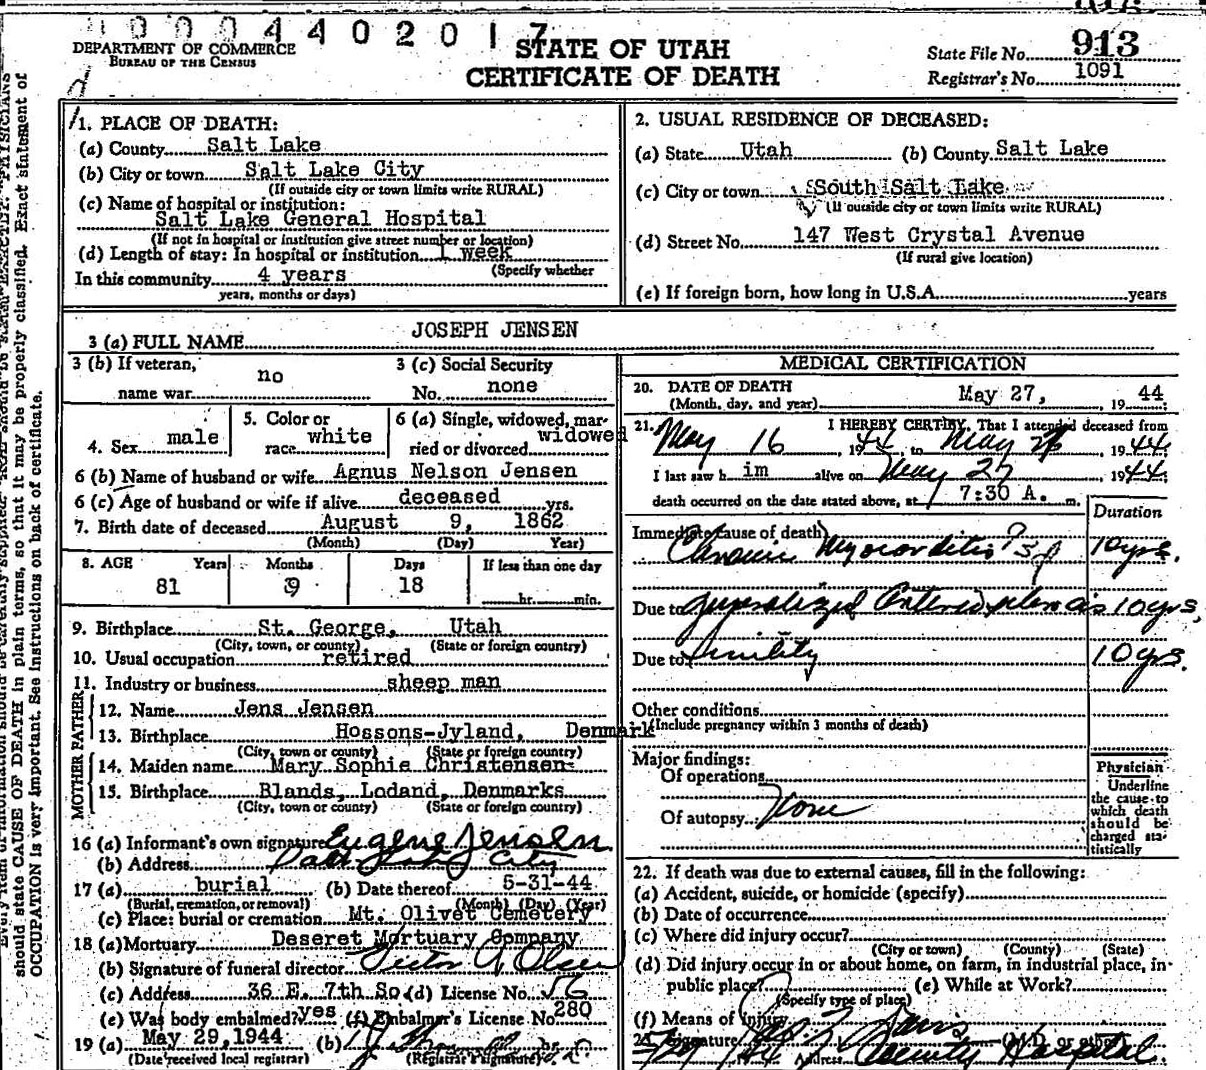 0 0 0 4 4 0 2 0 1 7
DEPARTMENT OF COMMERCE
BUREAU OF THE CENSUS
STATE OF UTAH
CERTIFICATE OF DEATH
State File No. 913
Registrar's No. 1091
1. PLACE OF DEATH:
(a) County Salt Lake
(b) City or town Salt Lake City
(If outside city or town limits write RURAL)
(c) Name of hospital or institution:
Salt Lake General Hospital
(If not in hospital or institution give street number or location)
(d) Length of stay: In hospital or institution 1 week
(Specify whether
In this community 4 years
years, months or days)
2. USUAL RESIDENCE OF DECEASED:
(a) State Utah (b) County Salt Lake
(c) City or town South Salt Lake
(If outside city or town limits write RURAL)
(d) Street No. 147 West Crystal Avenue
(If rural give location)
(e) If foreign born, how long in U.S.A. years
3 (a) FULL NAME JOSEPH JENSEN
3 (b) If veteran, name war no
3 (c) Social Security No. none
4. Sex male
5. Color or race white
6 (a) Single, widowed, married or divorced widowed
6 (b) Name of husband or wife Agnus Nelson Jensen
6 (c) Age of husband or wife if alive deceased yrs.
7. Birth date of deceased August 9, 1862
(Month) (Day) Year)
8. AGE Years Months Days If less than one day
81 9 18 hr. min.
9. Birthplace St. George, Utah
(City, town, or county) (State or foreign country)
10. Usual occupation retired
11. Industry or business sheep man
FATHER
12. Name Jens Jensen
13. Birthplace Hossons-Jyland, Denmark
(City, town or county) (State or foreign country)
MOTHER
14. Maiden name Mary Sophie Christensen
15. Birthplace Blands, Lodand, Denmarks
(City, town or county) (State or foreign country)
16 (a) Informant's own signature Eugene Jensen
(b) Address Salt Lake City
17 (a) burial (b) Date thereof 5-31-44
(Burial, cremation, or removal) (Month) (Day) (Year)
(c) Place: burial or cremation Mt. Olivet Cemetery
18 (a) Mortuary Deseret Mortuary Company
(b) Signature of funeral director Victor A Olsen
(c) Address 36 E. 7th So. (d) License No. 56
(e) Was body embalmed? yes (f) Embalmer's License No. 280
19 (a) May 29, 1944 (b)
(Date received local registrar) (Registrar's signature)
MEDICAL CERTIFICATION
20. DATE OF DEATH
(Month, day, and year) May 27, 19 44
21. I HEREBY CERTIFY, That I attended deceased from
May 16, 1944, to May 26, 1944
I last saw him alive on May 27, 1944
death occurred on the date stated above, at 7:30 A. m.
Duration
Immediate cause of death
Chronic Myocarditis 10 yrs.
Due to generalized Arteriosclerosis 10 yrs,
Due to Senility 10 yrs.
Other conditions
(Include pregnancy within 3 months of death)
Major findings:
Of operations
Of autopsy None
Physician
Underline the cause to which death should be charged statistically
22. If death was due to external causes, fill in the following:
(a) Accident, suicide, or homicide (specify)
(b) Date of occurrence
(c) Where did injury occur?
(City or town) (County) (State)
(d) Did injury occur in or about home, on farm, in industrial place, in public place? (e) While at Work?
(Specify type of place)
(f) Means of injury
Signature Davis (M.D. or other)
Address County Hospital
should state CAUSE OF DEATH in plain terms, so that it may be properly classified. Exact statement of
OCCUPATION is very important. See instructions on back of certificate.